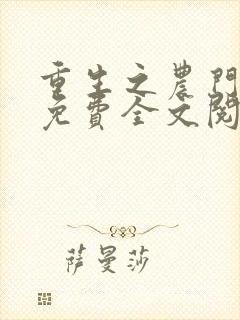 重生之農門
免費全文閱
萨曼莎